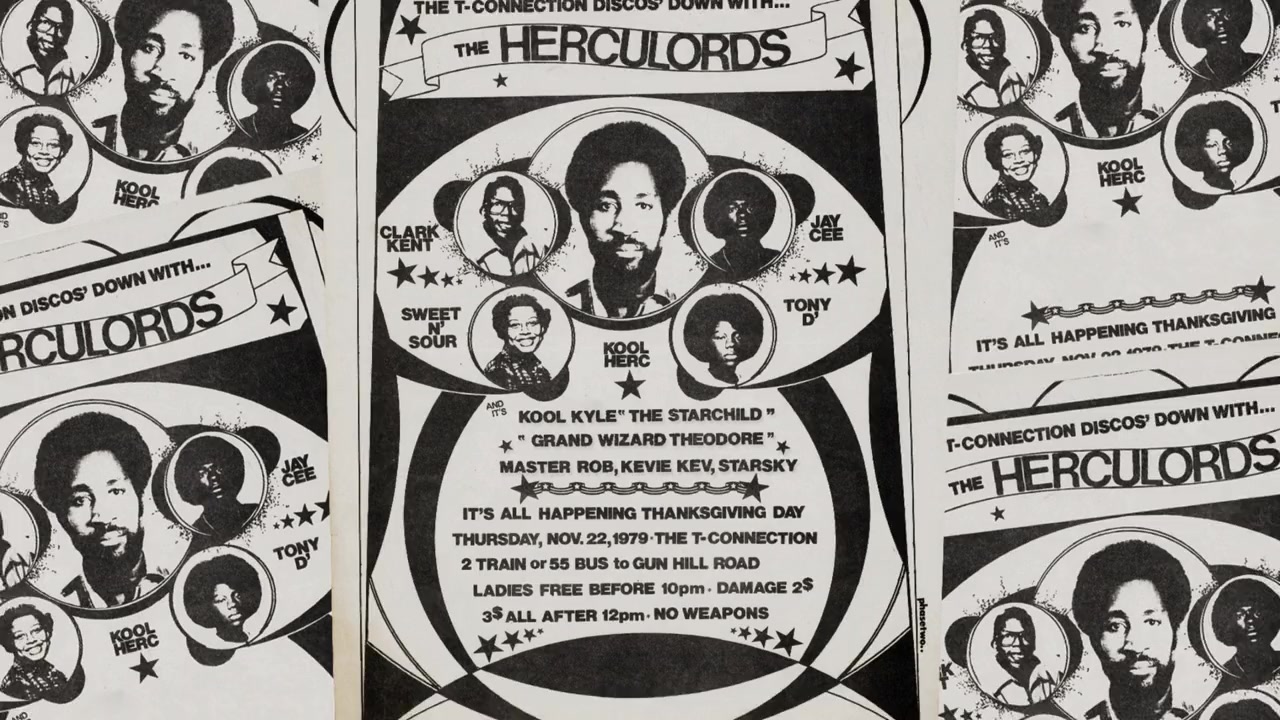 THE T-CONNECTION DISCOS' DOWN WITH...
THE HERCULORDS
CLARK
KENT
JAY
CEE
SWEET
N'
SOUR
TONY
D'
KOOL
HERC
AND
IT'S
KOOL KYLE "THE STARCHILD"
"GRAND WIZARD THEODORE"
MASTER ROB, KEVIE KEV, STARSKY
IT'S ALL HAPPENING THANKSGIVING DAY
THURSDAY, NOV. 22, 1979 · THE T-CONNECTION
2 TRAIN or 55 BUS to GUN HILL ROAD
LADIES FREE BEFORE 10pm · DAMAGE 2$
3$ ALL AFTER 12pm · NO WEAPONS
phasetwo..
KOOL
HERC
ON DISCOS' DOWN WITH...
RCULORDS
JAY
CEE
TONY
D'
KOOL
HERC
AND
KOOL
HERC
AND
IT'S
IT'S ALL HAPPENING THANKSGIVING
THURSDAY, NOV. 22, 1979 · THE T-CONNE
T-CONNECTION DISCOS' DOWN WITH...
THE HERCULORDS